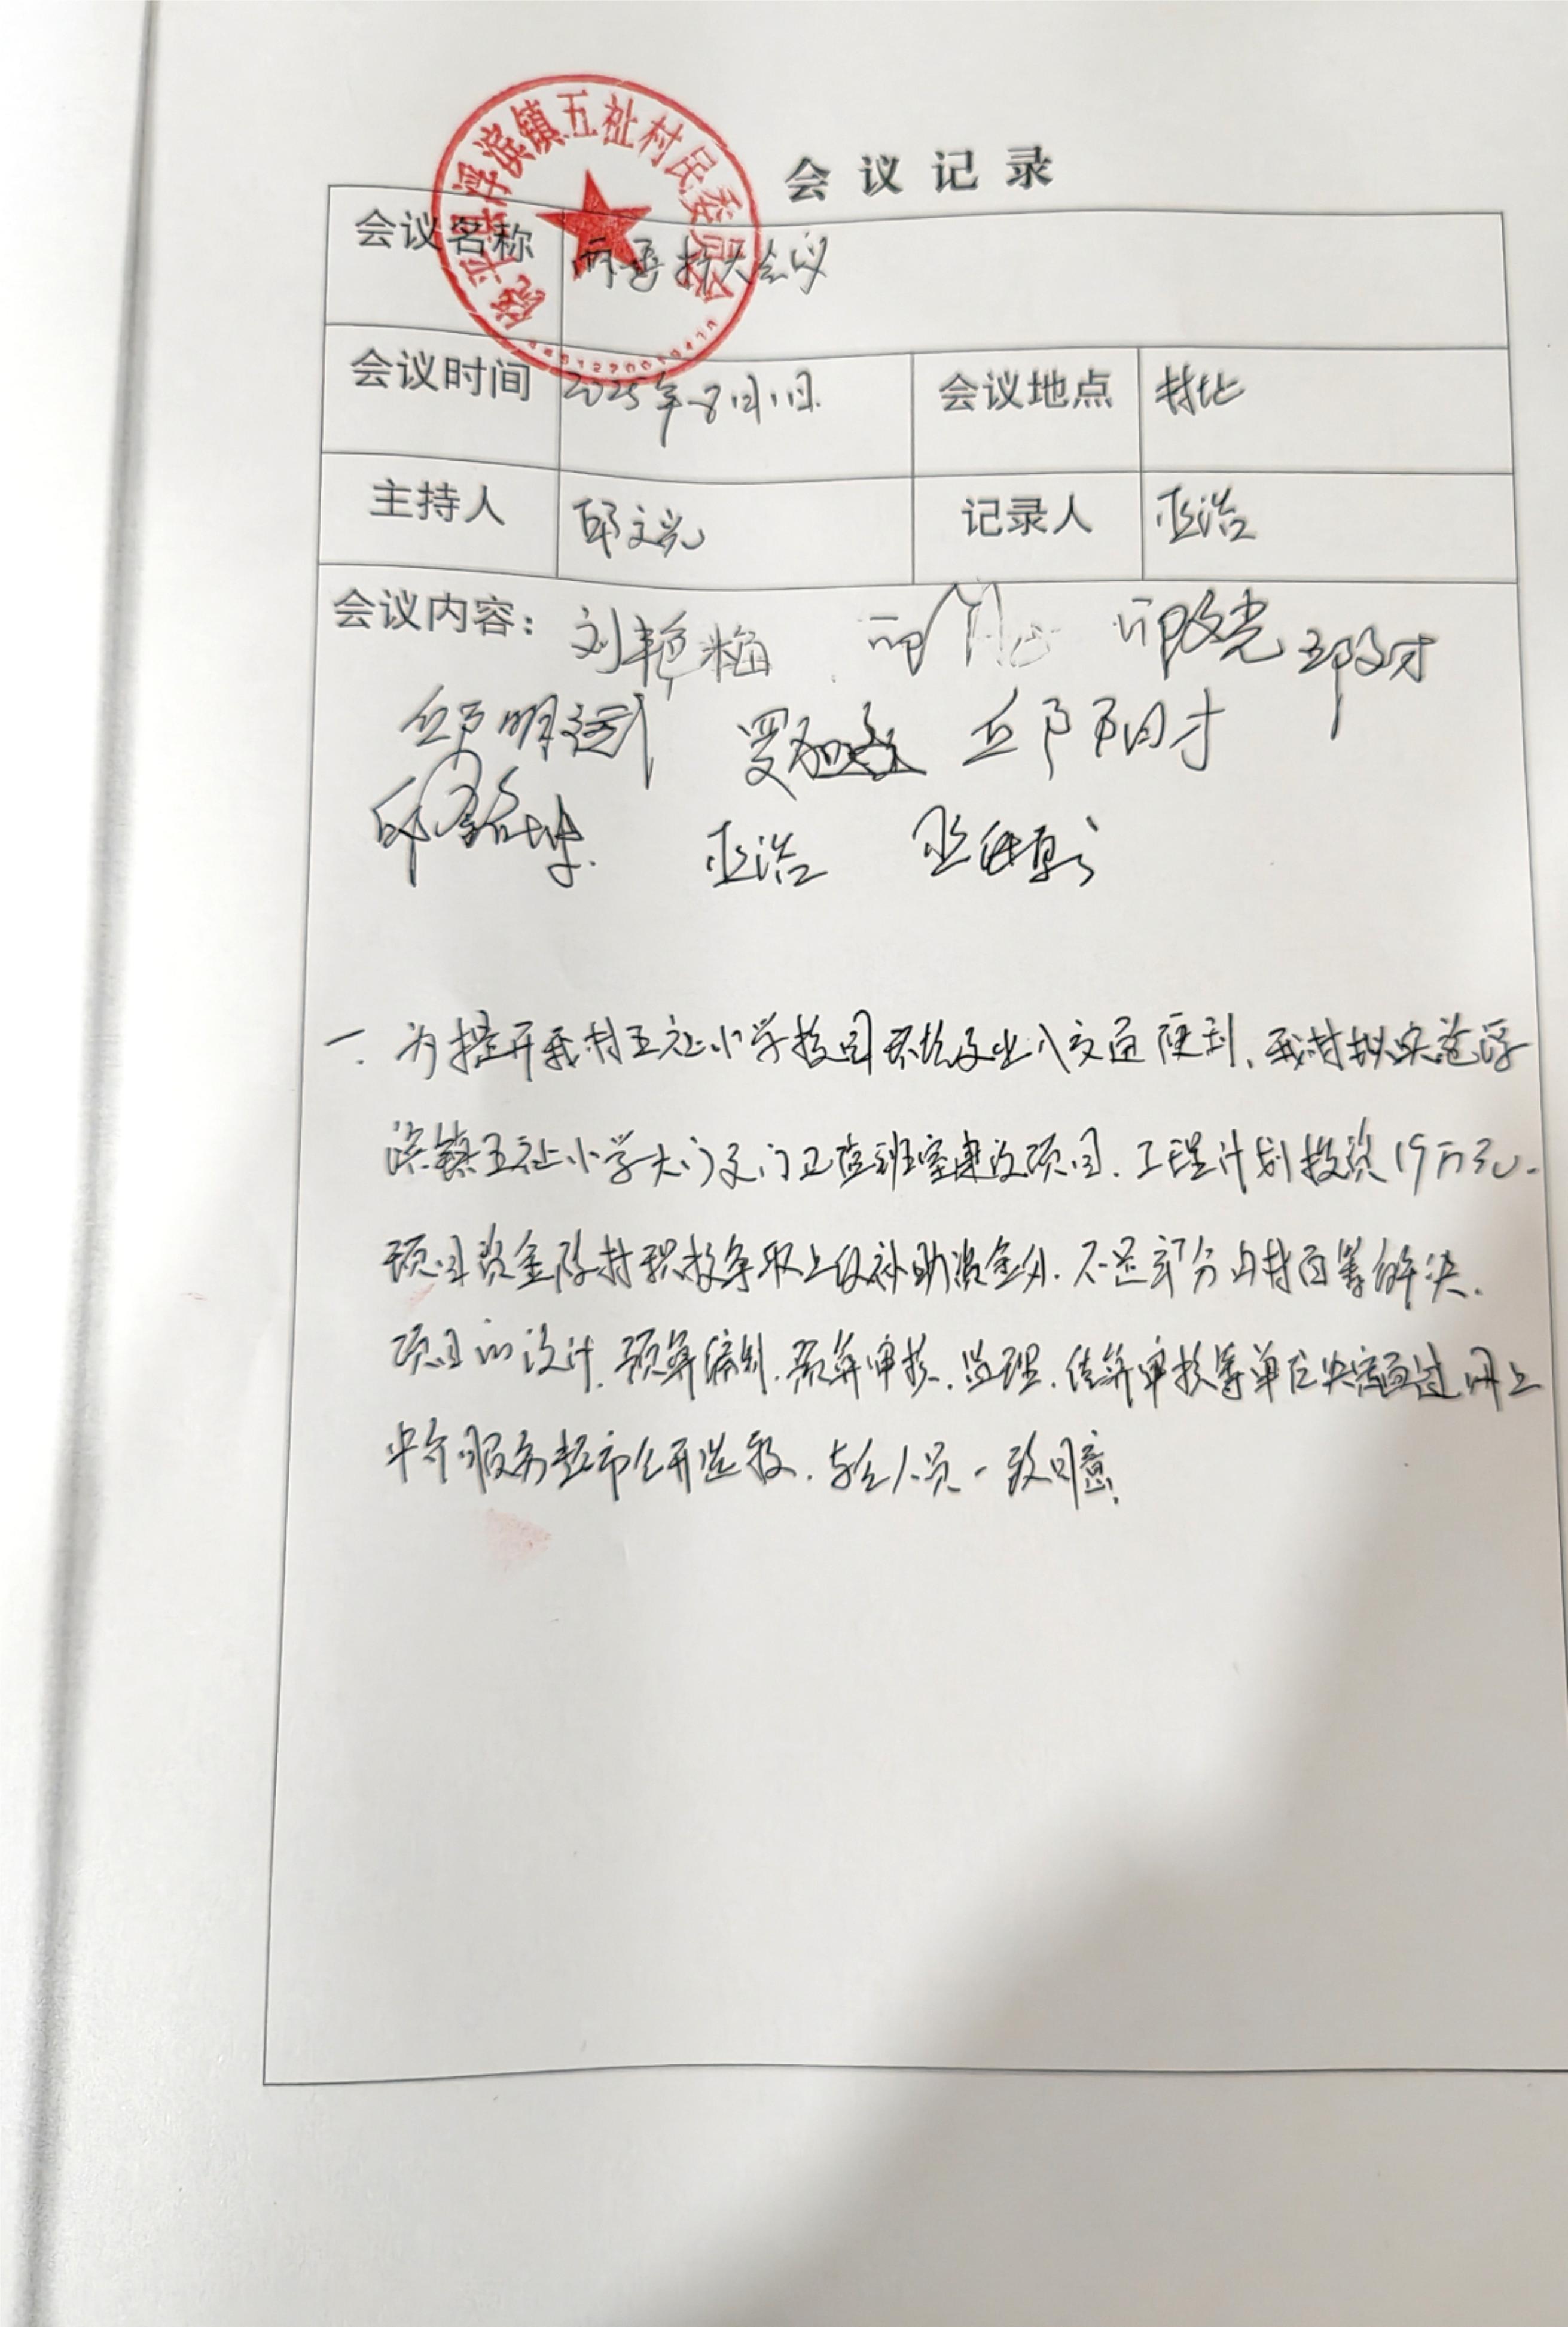 饶平县浮滨镇五祉村民委员会
会议记录
会议名称 两委扩大会议
会议时间 2025年8月1日 会议地点 村址
主持人 邱文光 记录人 巫浩
会议内容：刘艳梅 邱文光 邱文才
邱明远 邱阳才
巫浩
一、为提升我村五祉小学校园环境及出入交通便利，我村拟实施浮
滨镇五祉小学大门及门卫值班室建设项目，工程计划投资19万元，
项目资金除村积极争取上级补助资金外，不足部分由村自筹解决，
项目的设计、预算编制、预算审核、监理、结算审核等单位决定通过网上
中介服务超市公开选取，与会人员一致同意。